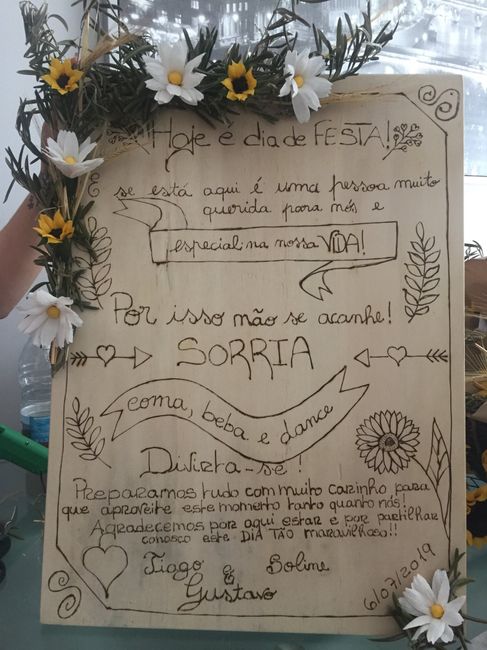 Hoje é dia de FESTA!
E
se está aqui é uma pessoa muito
querida para nós e
especial na nossa VIDA!
Por isso não se acanhe!
SORRIA
coma, beba e dance
Divirta-se!
Preparamos tudo com muito carinho para
que aproveite este momento tanto quanto nós!
Agradecemos por aqui estar e por partilhar
conosco este DIA TÃO maravilhoso!!
Tiago e Soline
Gustavo
6/07/2019